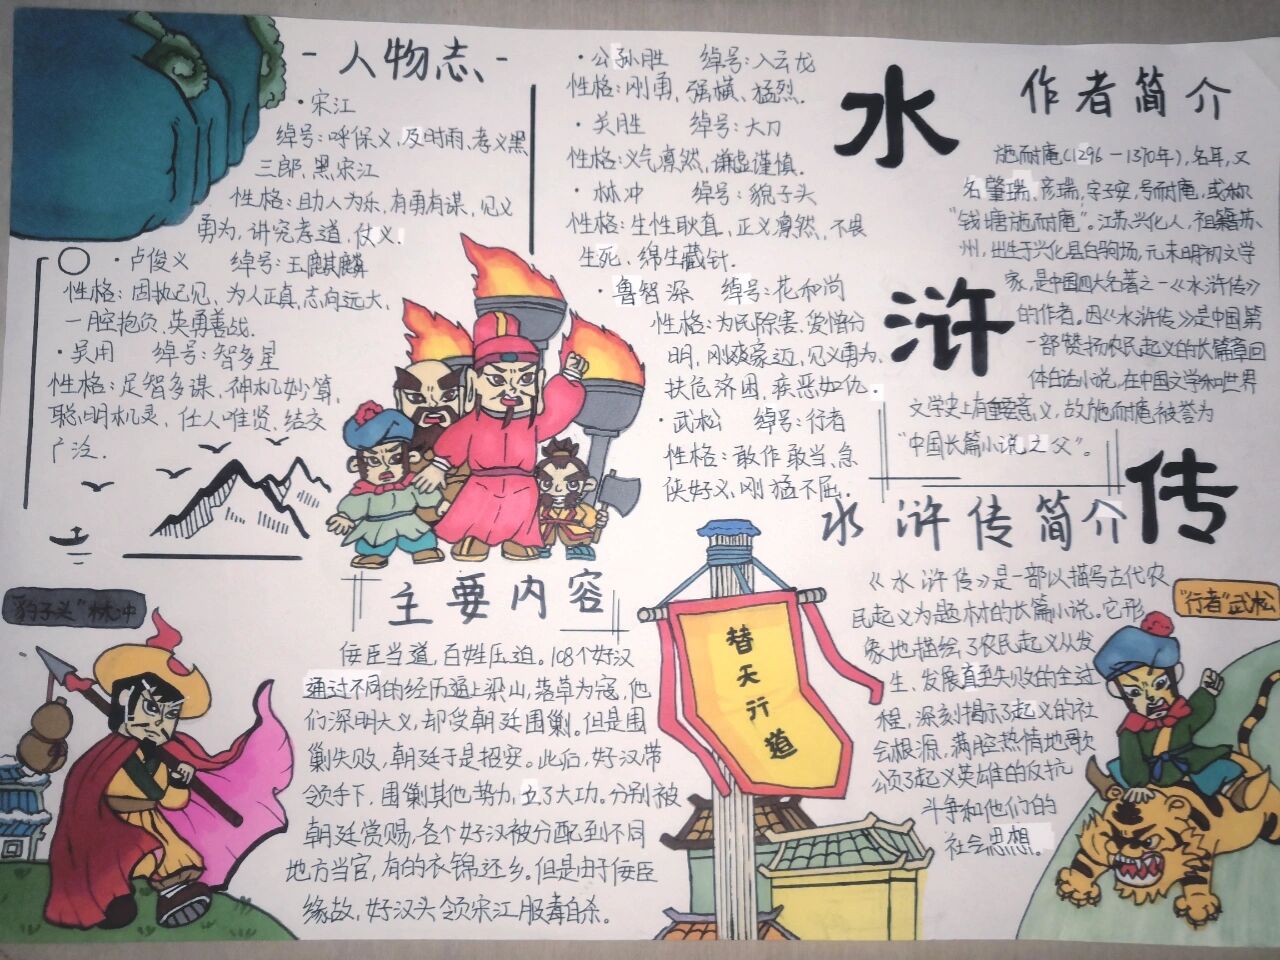 -人物志-
·宋江
绰号:呼保义,及时雨,孝义黑
三郎,黑宋江
性格:助人为乐,有勇有谋,见义
勇为,讲究孝道,仗义.
·卢俊义 绰号:玉麒麟
性格:固执己见、为人正真,志向远大,
一腔抱负,英勇善战.
·吴用 绰号:智多星
性格:足智多谋,神机妙算,
聪明机灵、任人唯贤、结交
广泛.
·公孙胜 绰号:入云龙
性格:刚勇、强横、猛烈.
·关胜 绰号:大刀
性格:义气凛然,谦虚谨慎.
·林冲 绰号:豹子头
性格:生性耿直,正义凛然,不畏
生死、绵里藏针.
·鲁智深 绰号:花和尚
性格:为民除害,爱憎分
明,刚爽豪迈,见义勇为、
扶危济困,疾恶如仇.
·武松 绰号:行者
性格:敢作敢当、急
侠好义,刚猛不屈.
水
浒
传
作者简介
施耐庵(1296-1370年),名耳,又
名肇瑞,彦瑞,字子安,号耐庵,或称
"钱塘施耐庵"。江苏兴化人,祖籍苏
州,出生于兴化县白驹场,元末明初文学
家,是中国四大名著之一《水浒传》
的作者。因《水浒传》是中国第
一部赞扬农民起义的长篇章回
体白话小说,在中国文学和世界
文学史上有重要意义,故施耐庵被誉为
"中国长篇小说之父"。
水浒传简介
《水浒传》是一部以描写古代农
民起义为题材的长篇小说。它形
象地描绘了农民起义从发
生、发展直至失败的全过
程,深刻揭示了起义的社
会根源,满腔热情地歌
颂了起义英雄的反抗
斗争和他们的
社会思想。
主要内容
佞臣当道,百姓压迫。108个好汉
通过不同的经历逼上梁山,落草为寇,他
们深明大义,却受朝廷围剿。但是围
剿失败,朝廷于是招安。此后,好汉带
领手下,围剿其他势力,立了大功。分别被
朝廷赏赐,各个好汉被分配到不同
地方当官,有的衣锦还乡。但是由于佞臣
缘故,好汉头领宋江服毒自杀。
"豹子头"林冲
替天行道
"行者"武松